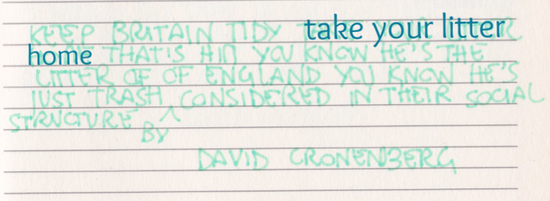 KEEP BRITAIN TIDY take your litter
home THAT'S HIM YOU KNOW HE'S THE
LITTER OF OF ENGLAND YOU KNOW HE'S
JUST TRASH ^ CONSIDERED IN THEIR SOCIAL
STRUCTURE BY
DAVID CRONENBERG